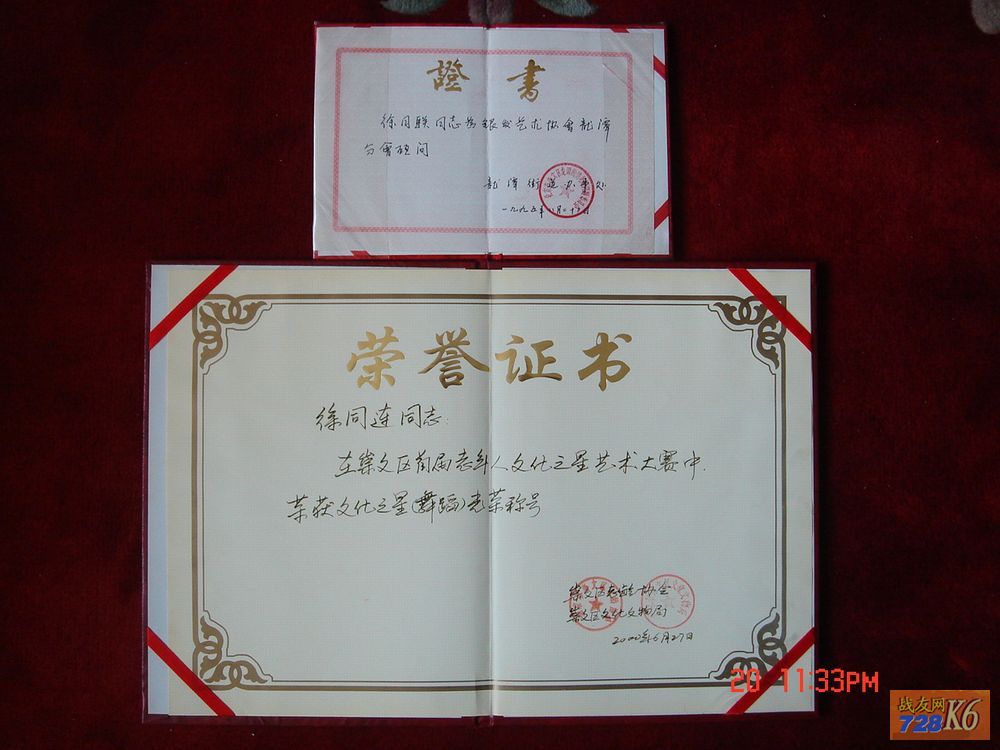 證書
徐同联同志为银发艺术协会龙潭
分会顾问
龙潭街道办事处
一九九五年
荣誉证书
徐同连同志:
在崇文区首届老年人文化之星艺术大赛中.
荣获文化之星(舞蹈)光荣称号
崇文区老龄协会
崇文区文化文物局
2000年6月27日
20 11:33PM
战友网
728K6